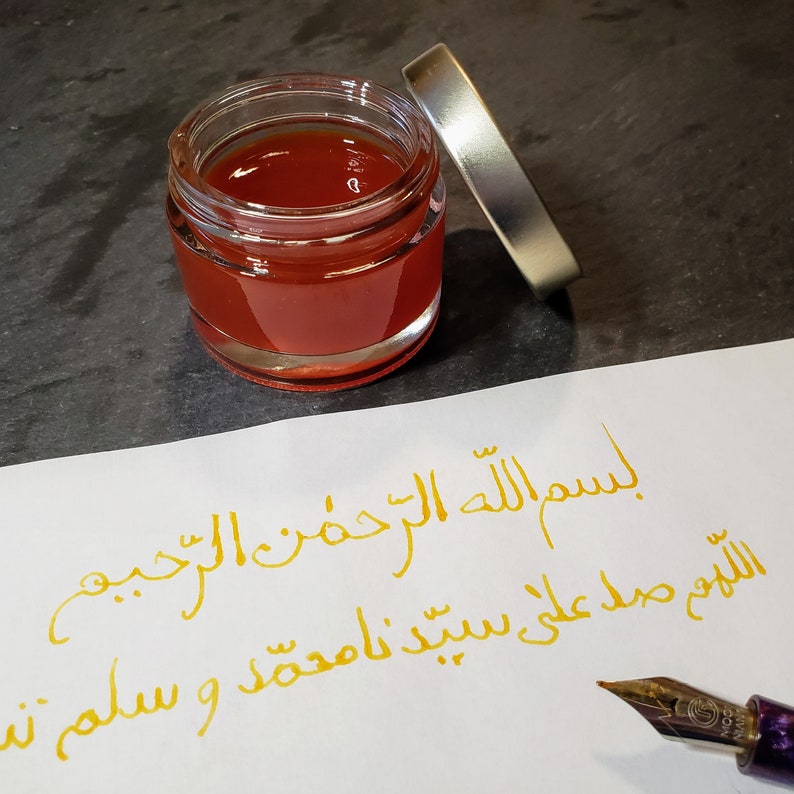 بسم اللّه الرّحمٰن الرّحيم
اللّهم صل على سيّدنا محمّد و سلم